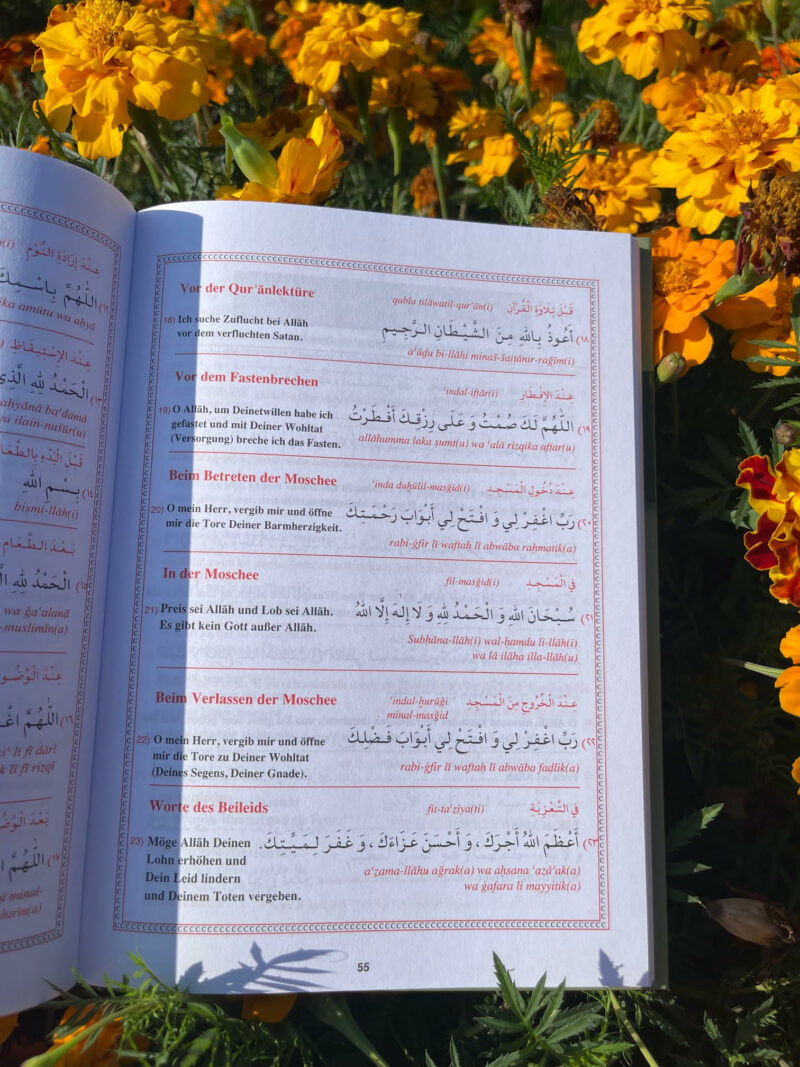 عِنْدَ إِرَادَةِ النَّوْمِ
اَللّٰهُمَّ بِاسْمِكَ
ika amūtu wa aḥyā
عِنْدَ الْاِسْتِيقَاظِ
اَلْحَمْدُ لِلّٰهِ الَّذِي
aḥyānā ba'damā
wa ilain-nušūr(u)
قَبْلَ الْبَدْءِ بِالطَّعَامِ
بِسْمِ اللهِ
bismi-llāh(i)
بَعْدَ الطَّعَامِ
اَلْحَمْدُ لِلّٰهِ
wa ǧa'alanā
-muslimīn(a)
عِنْدَ الْوُضُو
اَللّٰهُمَّ
lī fī dārī
k lī fī rizqī
بَعْدَ الْوُضُو
اَللّٰهُمَّ
minal-
hirīn(a)
Vor der Qur'ānlektüre
qabla tilāwatil-qur'ān(i) قَبْلَ تِلَاوَةِ الْقُرْآنِ
18) Ich suche Zuflucht bei Allāh
vor dem verfluchten Satan.
١٨) أَعُوذُ بِاللهِ مِنَ الشَّيْطَانِ الرَّجِيمِ
a'ūḏu bi-llāhi minaš-šaiṭānir-raǧīm(i)
Vor dem Fastenbrechen
'indal-ifṭār(i) عِنْدَ الْإِفْطَارِ
19) O Allāh, um Deinetwillen habe ich
gefastet und mit Deiner Wohltat
(Versorgung) breche ich das Fasten.
١٩) اَللّٰهُمَّ لَكَ صُمْتُ وَ عَلَى رِزْقِكَ أَفْطَرْتُ
allāhumma laka ṣumt(u) wa 'alā rizqika afṭar(u)
Beim Betreten der Moschee
'inda duḫūlil-masǧid(i) عِنْدَ دُخُولِ الْمَسْجِدِ
20) O mein Herr, vergib mir und öffne
mir die Tore Deiner Barmherzigkeit.
٢٠) رَبِّ اغْفِرْ لِي وَ افْتَحْ لِي أَبْوَابَ رَحْمَتِكَ
rabi-ġfir lī waftaḥ lī abwāba raḥmatik(a)
In der Moschee
fil-masǧid(i) فِي الْمَسْجِدِ
21) Preis sei Allāh und Lob sei Allāh.
Es gibt kein Gott außer Allāh.
٢١) سُبْحَانَ اللهِ وَ الْحَمْدُ لِلّٰهِ وَ لَا إِلٰهَ إِلَّا اللهُ
Subḥāna-llāh(i) wal-ḥamdu li-llāh(i)
wa lā ilāha illa-llāh(u)
Beim Verlassen der Moschee
'indal-ḫurūǧi عِنْدَ الْخُرُوجِ مِنَ الْمَسْجِدِ
minal-masǧid
22) O mein Herr, vergib mir und öffne
mir die Tore zu Deiner Wohltat
(Deines Segens, Deiner Gnade).
٢٢) رَبِّ اغْفِرْ لِي وَ افْتَحْ لِي أَبْوَابَ فَضْلِكَ
rabi-ġfir lī waftaḥ lī abwāba faḍlik(a)
Worte des Beileids
fit-ta'ziya(ti) فِي التَّعْزِيَةِ
23) Möge Allāh Deinen
Lohn erhöhen und
Dein Leid lindern
und Deinem Toten vergeben.
٢٣) أَعْظَمَ اللهُ أَجْرَكَ، وَ أَحْسَنَ عَزَاءَكَ، وَ غَفَرَ لِمَيِّتِكَ.
a'ẓama-llāhu aǧrak(a) wa aḥsana 'azā'ak(a)
wa ġafara li mayyitik(a)
55